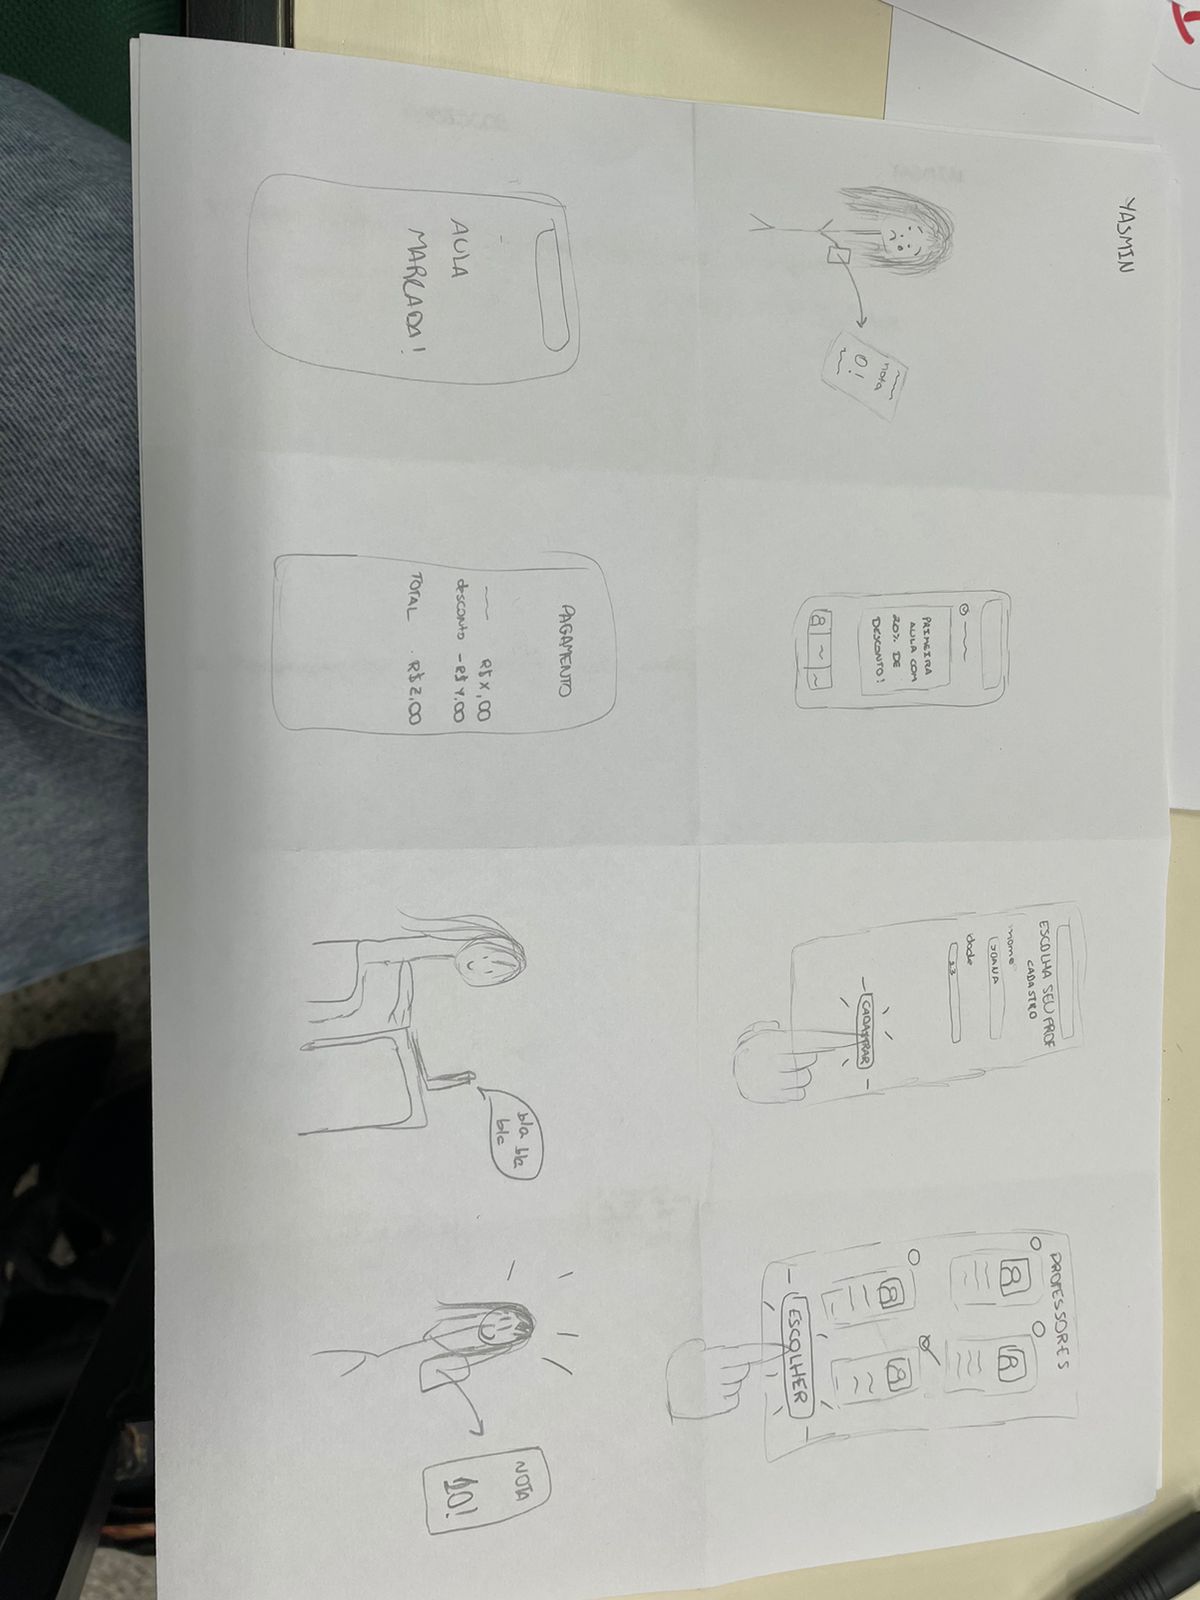 YASMIN
nota
0!
PRIMEIRA
AULA COM
20% DE
DESCONTO!
ESCOLHA SEU PROF
CADASTRO
nome
JOANA
idade
23
CADASTRAR
PROFESSORES
ESCOLHER
AULA
MARCADA!
PAGAMENTO
R$X,00
desconto -R$Y,00
TOTAL R$Z,00
bla bla
bla
NOTA
10!